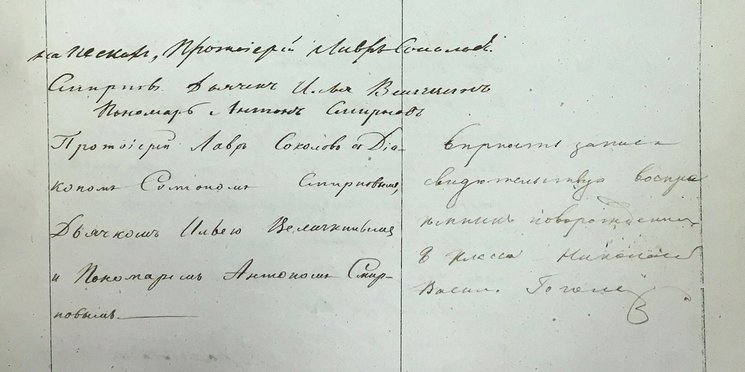 на Пескахъ, Протоіерей Лавръ Соколовъ.
Смирновъ. Дьячекъ Илья Величкинъ
Пономарь Антонъ Смирновъ
Протоіерей Лавръ Соколовъ съ Діа-
кономъ Смирновымъ,
Дьячкомъ Ильею Величкинымъ
и Пономаремъ Антономъ Смир-
новымъ
Вѣрность записи
свидѣтельствую воспрі-
емникъ новорожденнаго
8 класса Николай
Васил. Гоголь